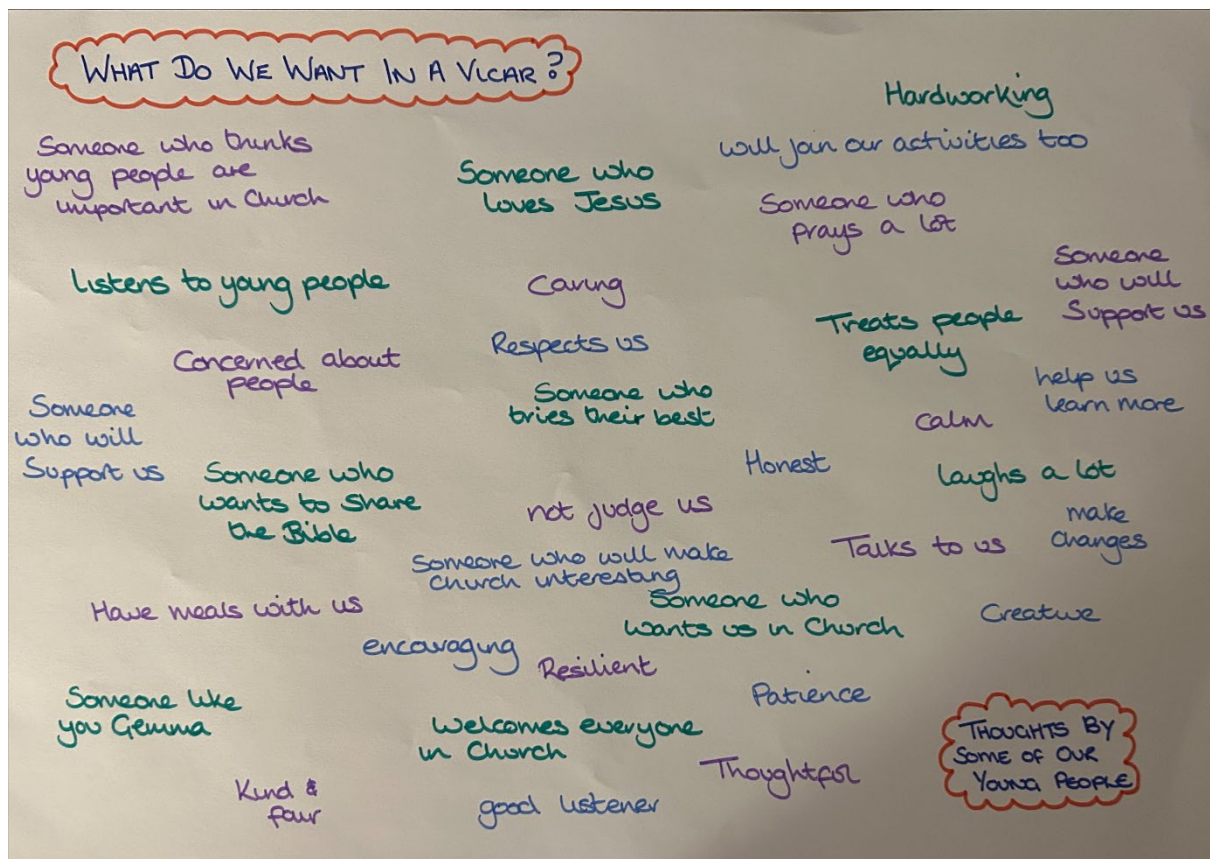 WHAT DO WE WANT IN A VICAR?
Hardworking
Someone who thinks
young people are
important in Church
will join our activities too
Someone who
loves Jesus
Someone who
prays a lot
Someone
who will
Support us
Listens to young people
Caring
Treats people
equally
Respects us
Concerned about
people
help us
learn more
Someone who
tries their best
Someone
who will
Support us
calm
Honest
Someone who
wants to share
the Bible
laughs a lot
not judge us
make
changes
Talks to us
Someone who will make
church interesting
Have meals with us
Someone who
wants us in Church
Creative
encouraging
Resilient
Patience
Someone like
you Gemma
Welcomes everyone
in Church
THOUGHTS BY
SOME OF OUR
YOUNG PEOPLE
Thoughtful
Kind &
fair
good listener